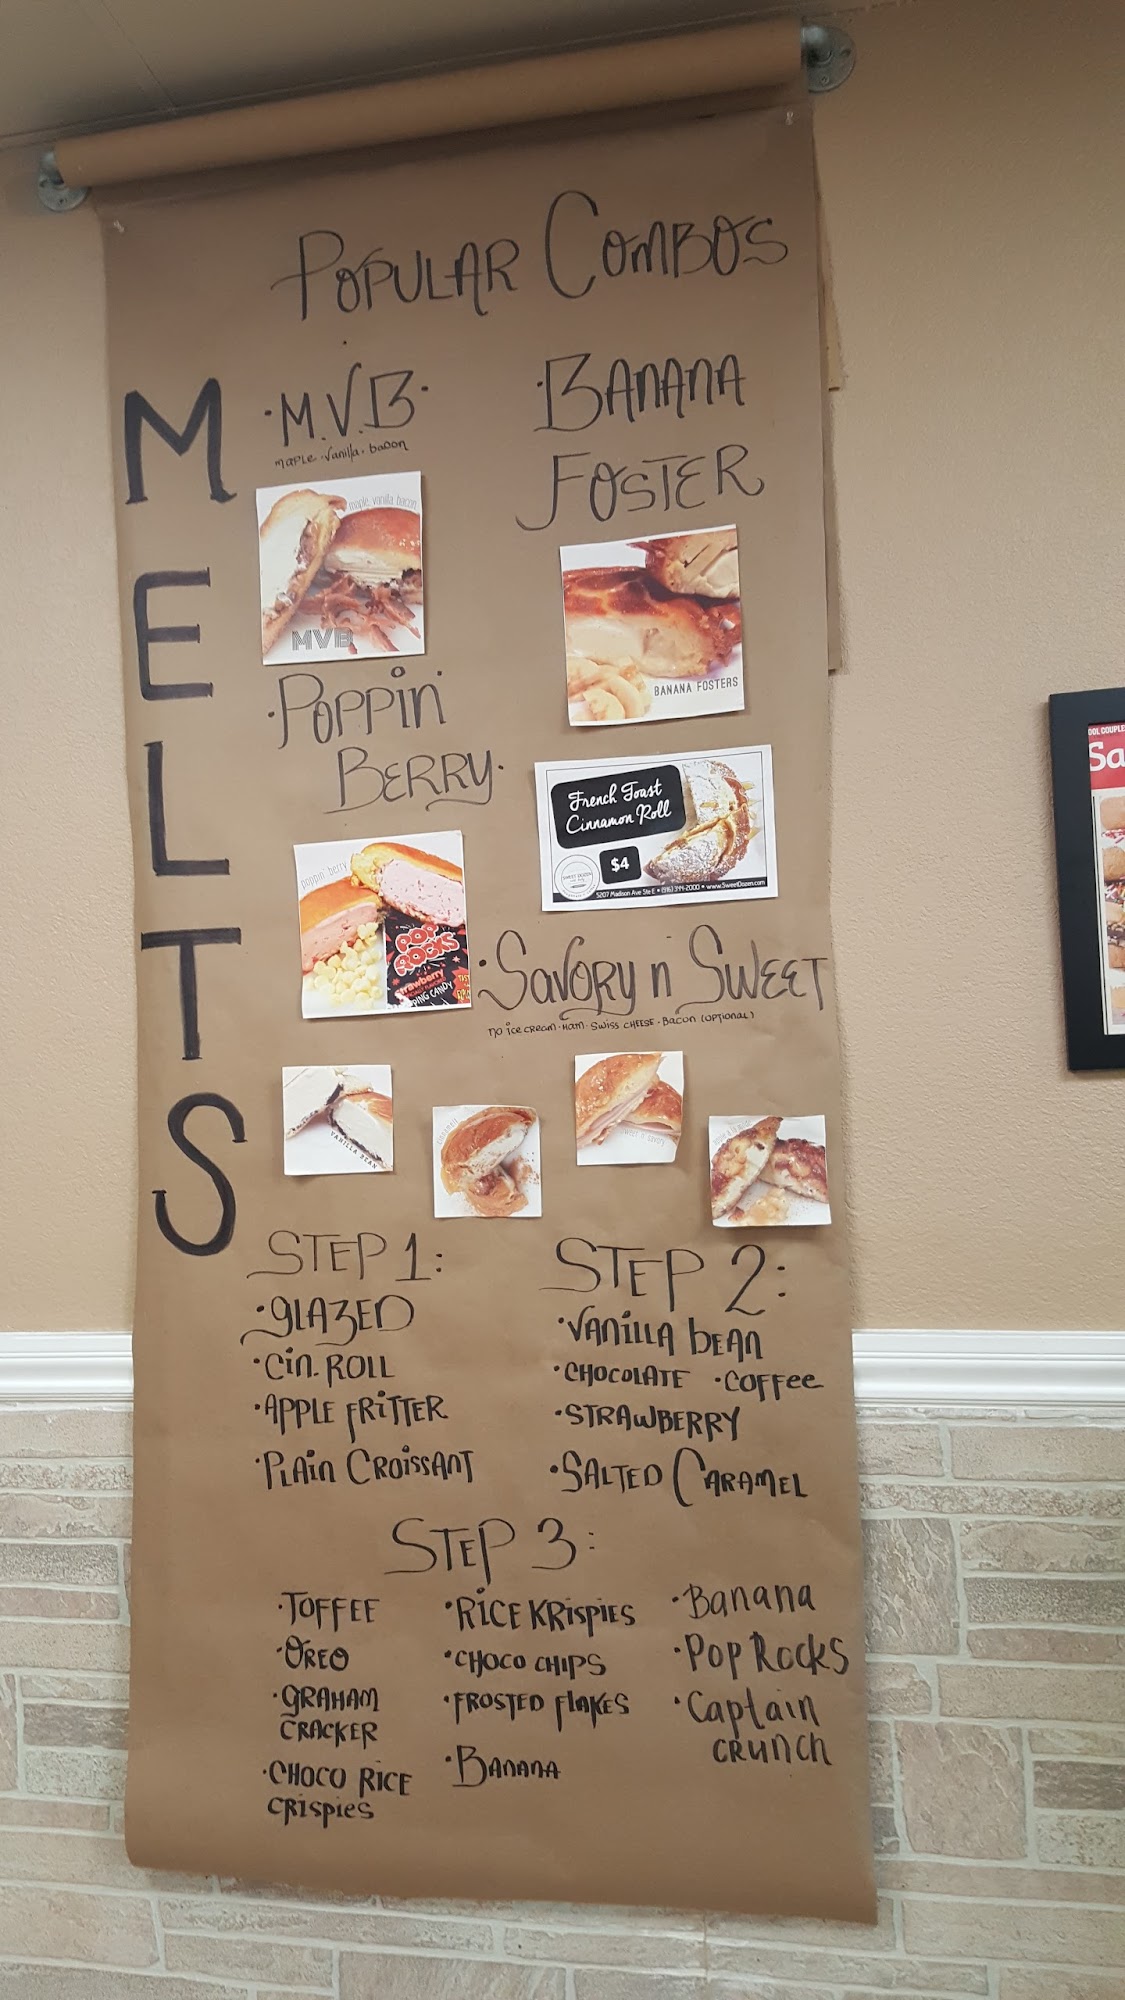 POPULAR COMBOS
MELTS
·M.V.B·
maple · vanilla · bacon
maple vanilla bacon
MVB
·BANANA
FOSTER
BANANA FOSTERS
·POPPIN'
BERRY·
poppin' berry
POP
ROCKS
strawberry
POPPING CANDY
French Toast
Cinnamon Roll
$4
SWEET DOZEN
5207 Madison Ave Ste E • (916) 344-2000 • www.SweetDozen.com
·SAVORY n SWEET
no ice cream · Ham · Swiss CHEESE · Bacon (OPTIONAL)
VANILLA BEAN
STEP 1:
·GLAZED
·Cin. ROLL
·APPLE FRITTER
·PLAIN CROISSANT
STEP 2:
·VANILLA bEAN
·CHOCOLATE ·COFFee
·STRAWBERRY
·SALTED CARAMEL
STEP 3:
·TOFFEE
·OREO
·GRAHAM
CRACKER
·CHOCO RICE
CRISPIES
·RICE KRISPIES
·CHOCO CHIPS
·FROSTED FLAKES
·BANANA
·Banana
·Pop Rocks
·Captain
CRUNCH
Sa